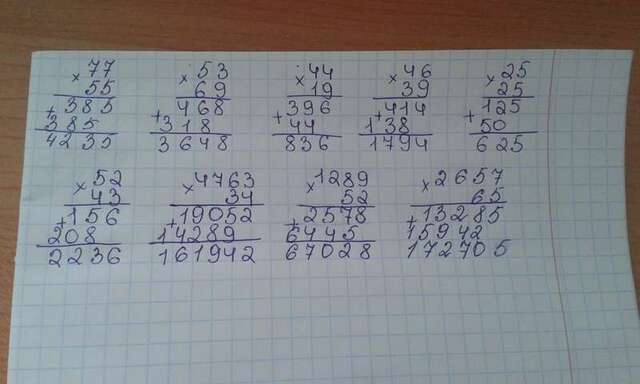 ×77
55
+385
385
4235
×53
69
+468
318
3648
×44
19
+396
44
836
×46
39
+414
138
1794
×25
25
+125
50
625
×52
43
+156
208
2236
×4763
34
+19052
14289
161942
×1289
52
+2578
6445
67028
×2657
65
+13285
15942
172705